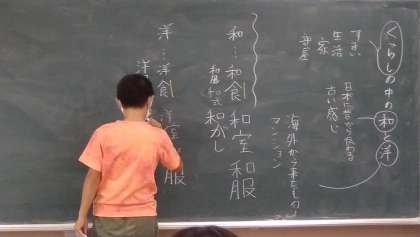 くらしの中の和と洋
すまい
生活
家
部屋
日本に昔から伝わる
古い感じ
海外から来たもの
マンション
和…和食 和室 和服
和風 和式 和がし
洋…洋食 洋室 洋服
洋